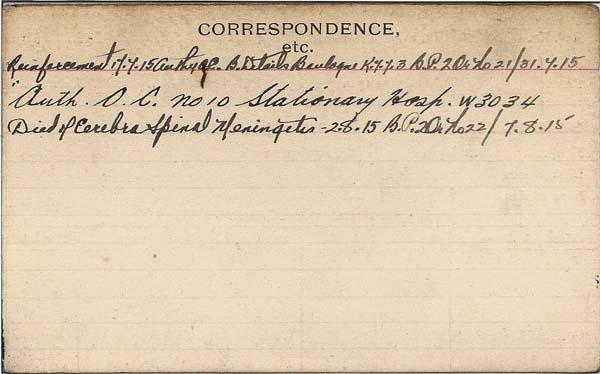 CORRESPONDENCE,
etc.
Reinforcement 17.7.15 Auth O.C. B. Details Boulogne K.773 B.P. 2 Or. No 21/31.7.15
" Auth. O. C. No 10 Stationary Hosp. W3034
Died of Cerebra Spinal Meningetis -2.8.15 B.P. 2 Or. No 22/7.8.15